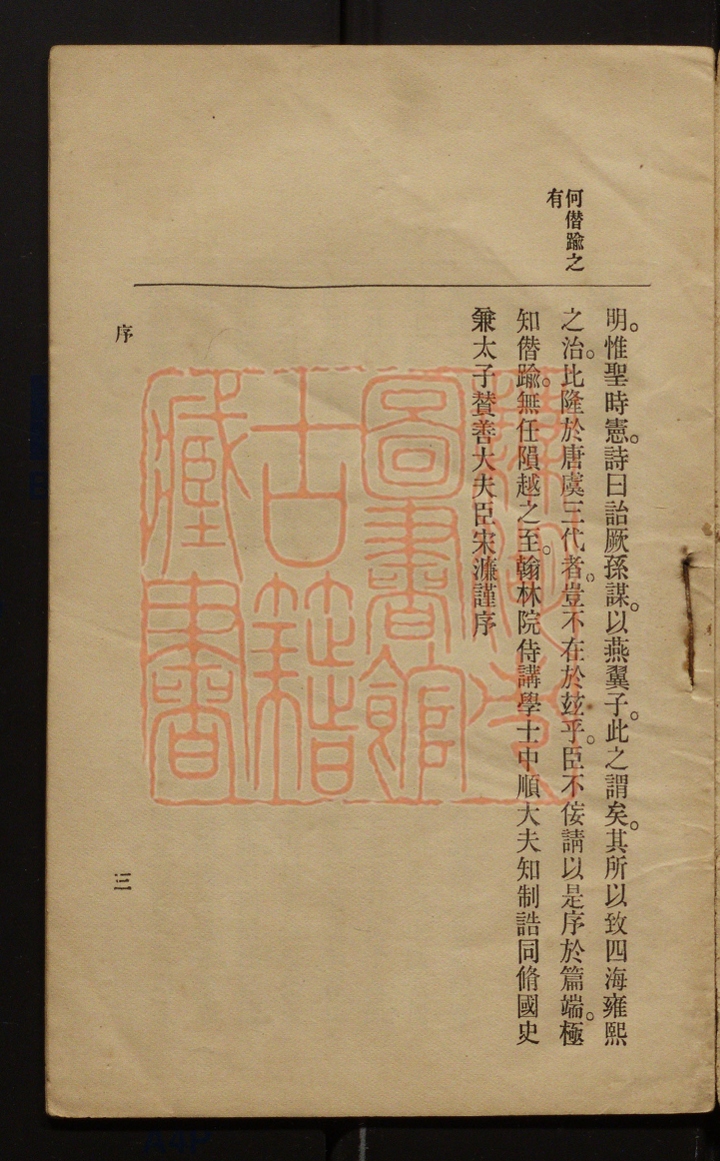 何僭踰之
有
明。惟聖時憲。詩曰詒厥孫謀。以燕翼子。此之謂矣。其所以致四海雍熙
之治。比隆於唐虞三代者。豈不在於玆乎。臣不佞請以是序於篇端。極
知僭踰。無任隕越之至。翰林院侍講學士中順大夫知制誥同脩國史
兼太子贊善大夫臣宋濂謹序
序
三
圖書館
古籍
藏書